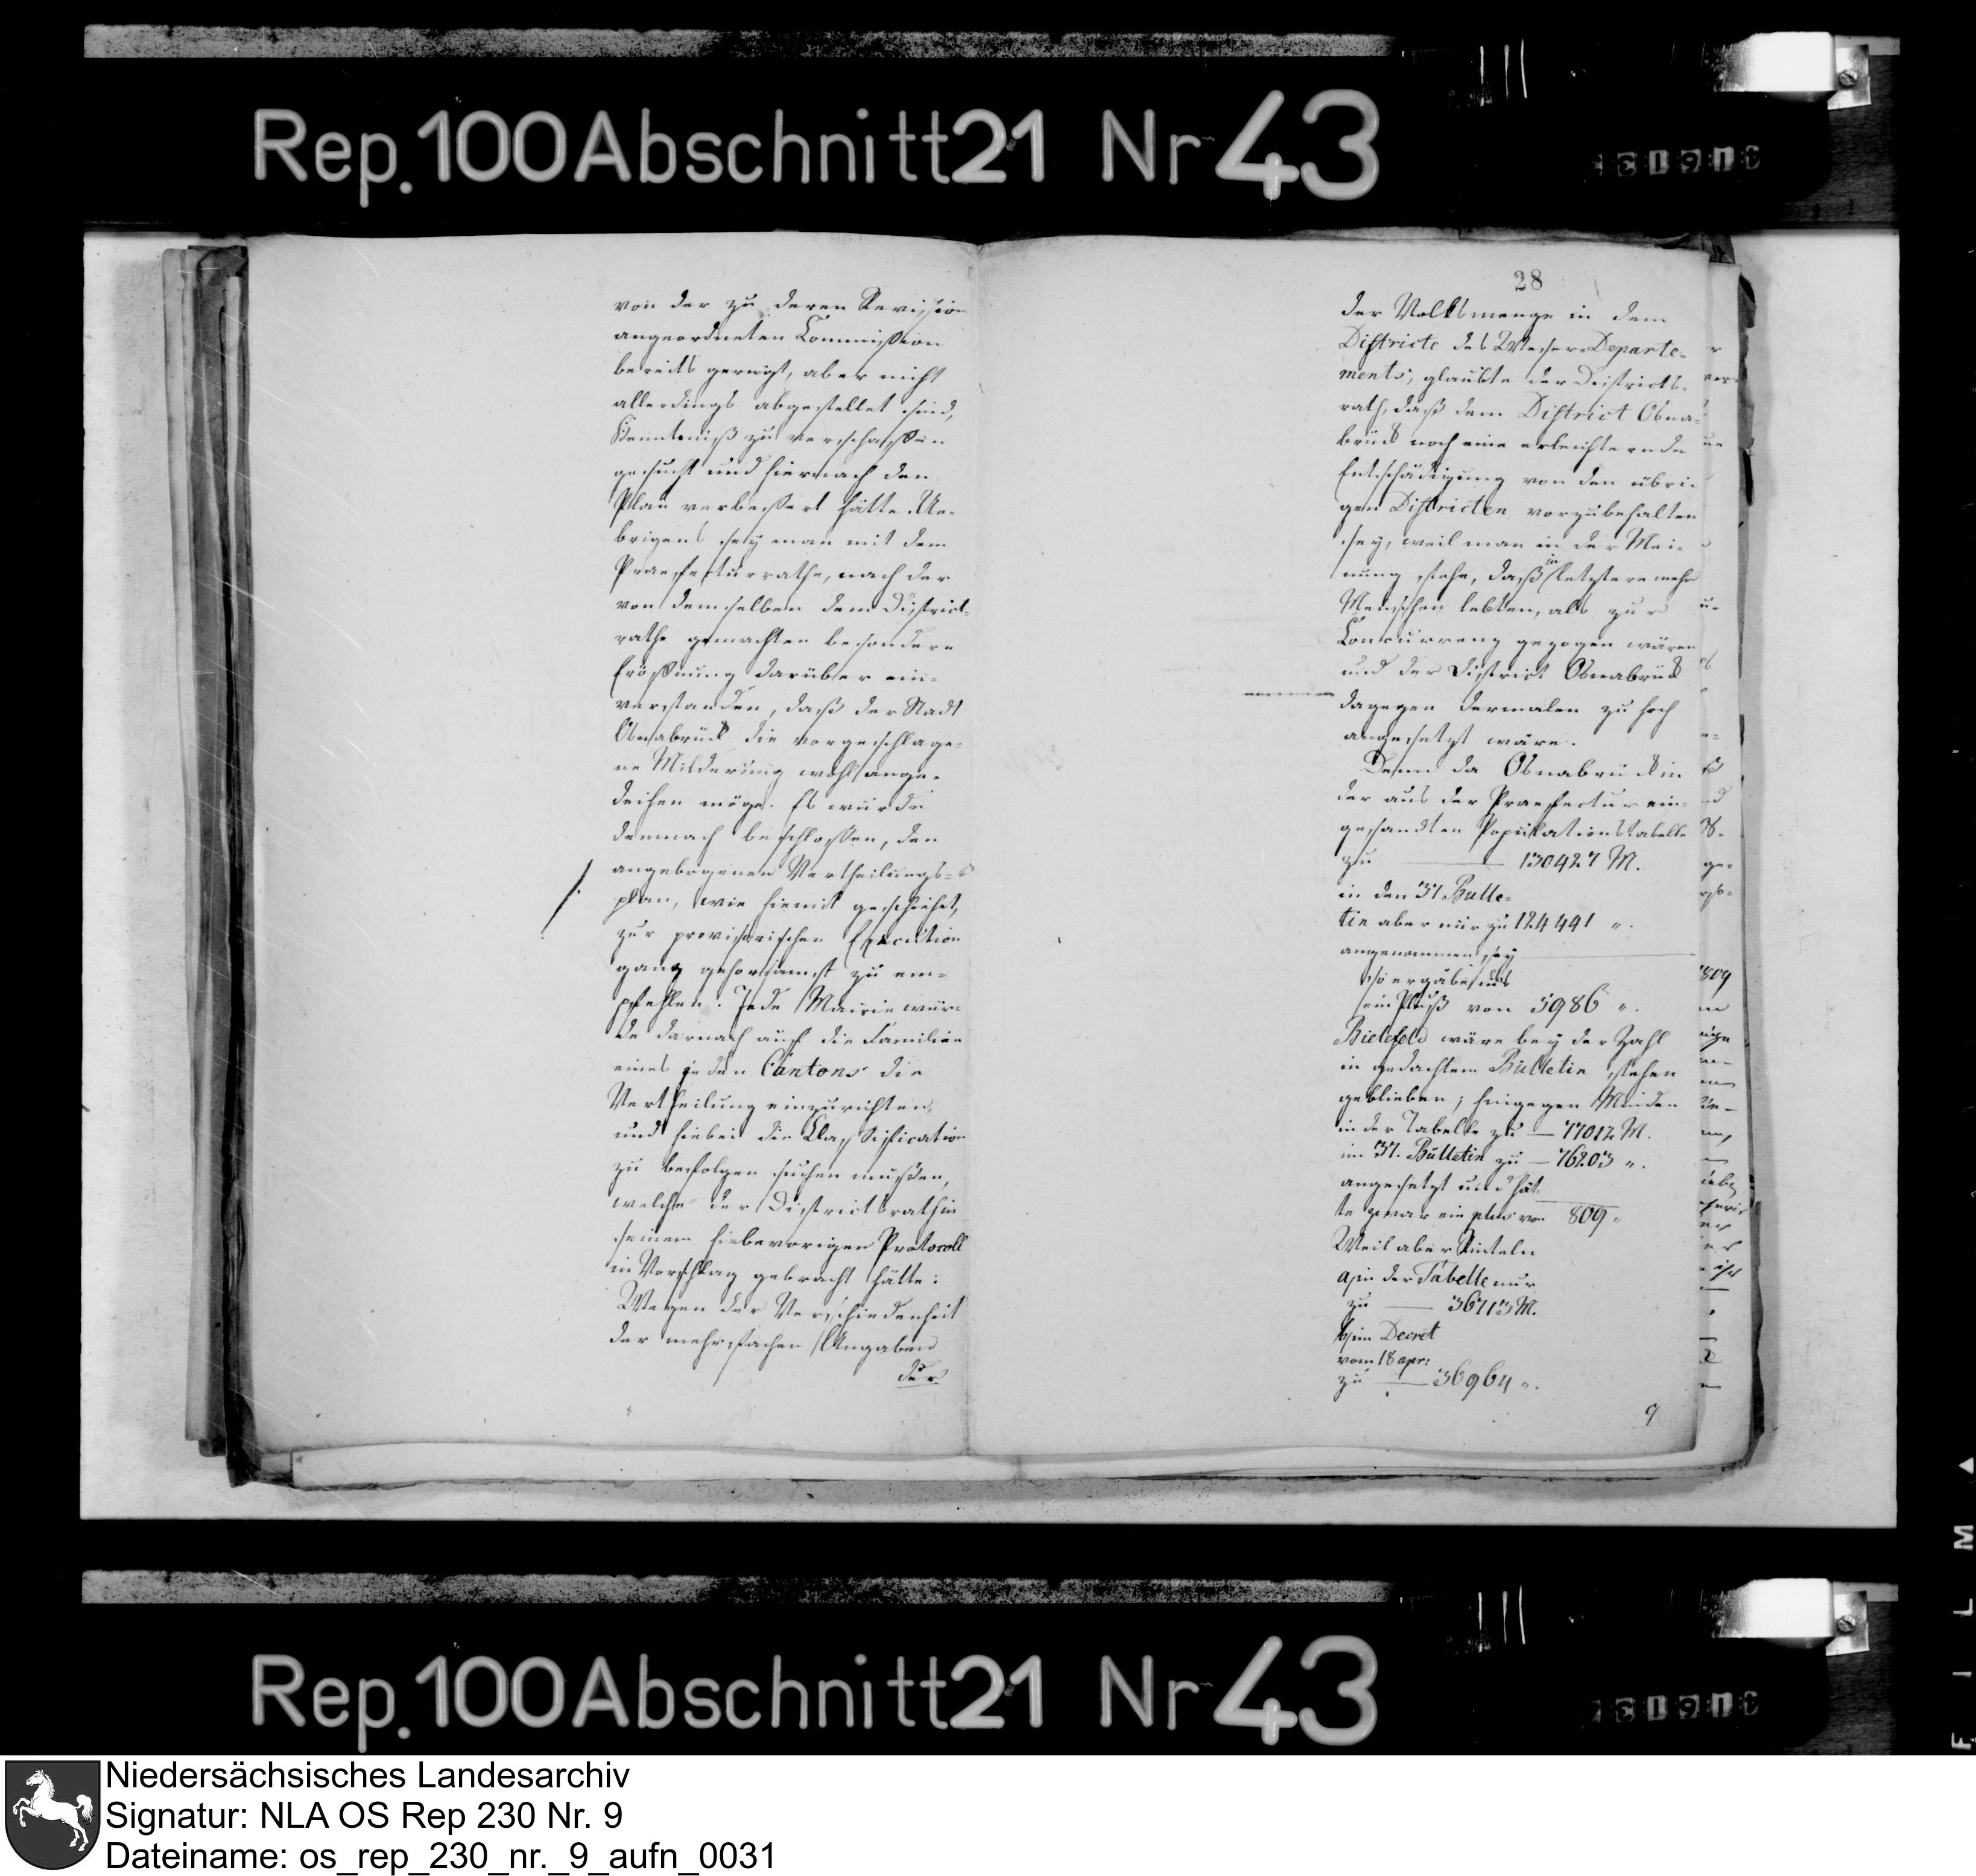 Rep. 100 Abschnitt 21 Nr 43
von der zu deren Revision
angeordneten Commission
bereits gerügt, aber nicht
allerdings abgestellet sind,
Kenntniß zu verschaffen
gesucht und hiernach den
Plan verbessert hätte. Ue-
brigens sey man mit dem
Praefecturrathe, nach der
von demselben dem District-
rathe gemachten besondern
Eröffnung darüber ein-
verstanden, daß der Stadt
Osnabrück die vorgeschlage-
ne Milderung wohl ange-
deihen möge. Es wurde
demnach beschlossen, den
angebogenen Vertheilungs-
plan, wie hiemit geschiehet,
zur provisorischen Execution
ganz gehorsamst zu em-
pfehlen. Jede Mairie wür-
de darnach auf die Familien
eines jeden Cantons die
Vertheilung einzurichten,
und hiebei die Classification
zu befolgen suchen müssen,
welche der Districtsrath in
seinem hiebevorigen Protocoll
in Vorschlag gebracht hätte:
Wegen der Verschiedenheit
der mehrfachen Angaben
der
28
der Volksmenge in dem
Districte des Weser-Departe-
ments, glaubte der Districts-
rath, daß dem District Osna-
brück noch eine erleichternde
Entschädigung von den übri-
gen Districten vorzubehalten
sey, weil man in der Mei-
nung stehe, daß in letztere mehr
Menschen lebten, als zur
Concurrenz gezogen wären
und der District Osnabrück
dagegen dermalen zu hoch
angesetzt wäre.
Denn da Osnabrück in
der aus der Praefectur ein-
gesandten Populationstabelle
zu — 130427 M.
in den 37. Bulle-
tin aber nur zu 124441 „.
angenommen sey
so ergäbe sich
ein Pluß von 5986 „.
Bielefeld wäre bey der Zahl
in gedachtem Bulletin stehen
geblieben; hingegen Minden
in der Tabelle zu — 77012 M.
im 37. Bulletin zu — 76203 „.
angesetzt und hät
te zwar ein plus von 809 „
Weil aber Rinteln
a) in der Tabelle nur
zu — 36713 M.
b) im Decret
vom 18 apr:
zu — 36964 „.
9
Rep. 100 Abschnitt 21 Nr 43
FILM
Niedersächsisches Landesarchiv
Signatur: NLA OS Rep 230 Nr. 9
Dateiname: os_rep_230_nr._9_aufn_0031